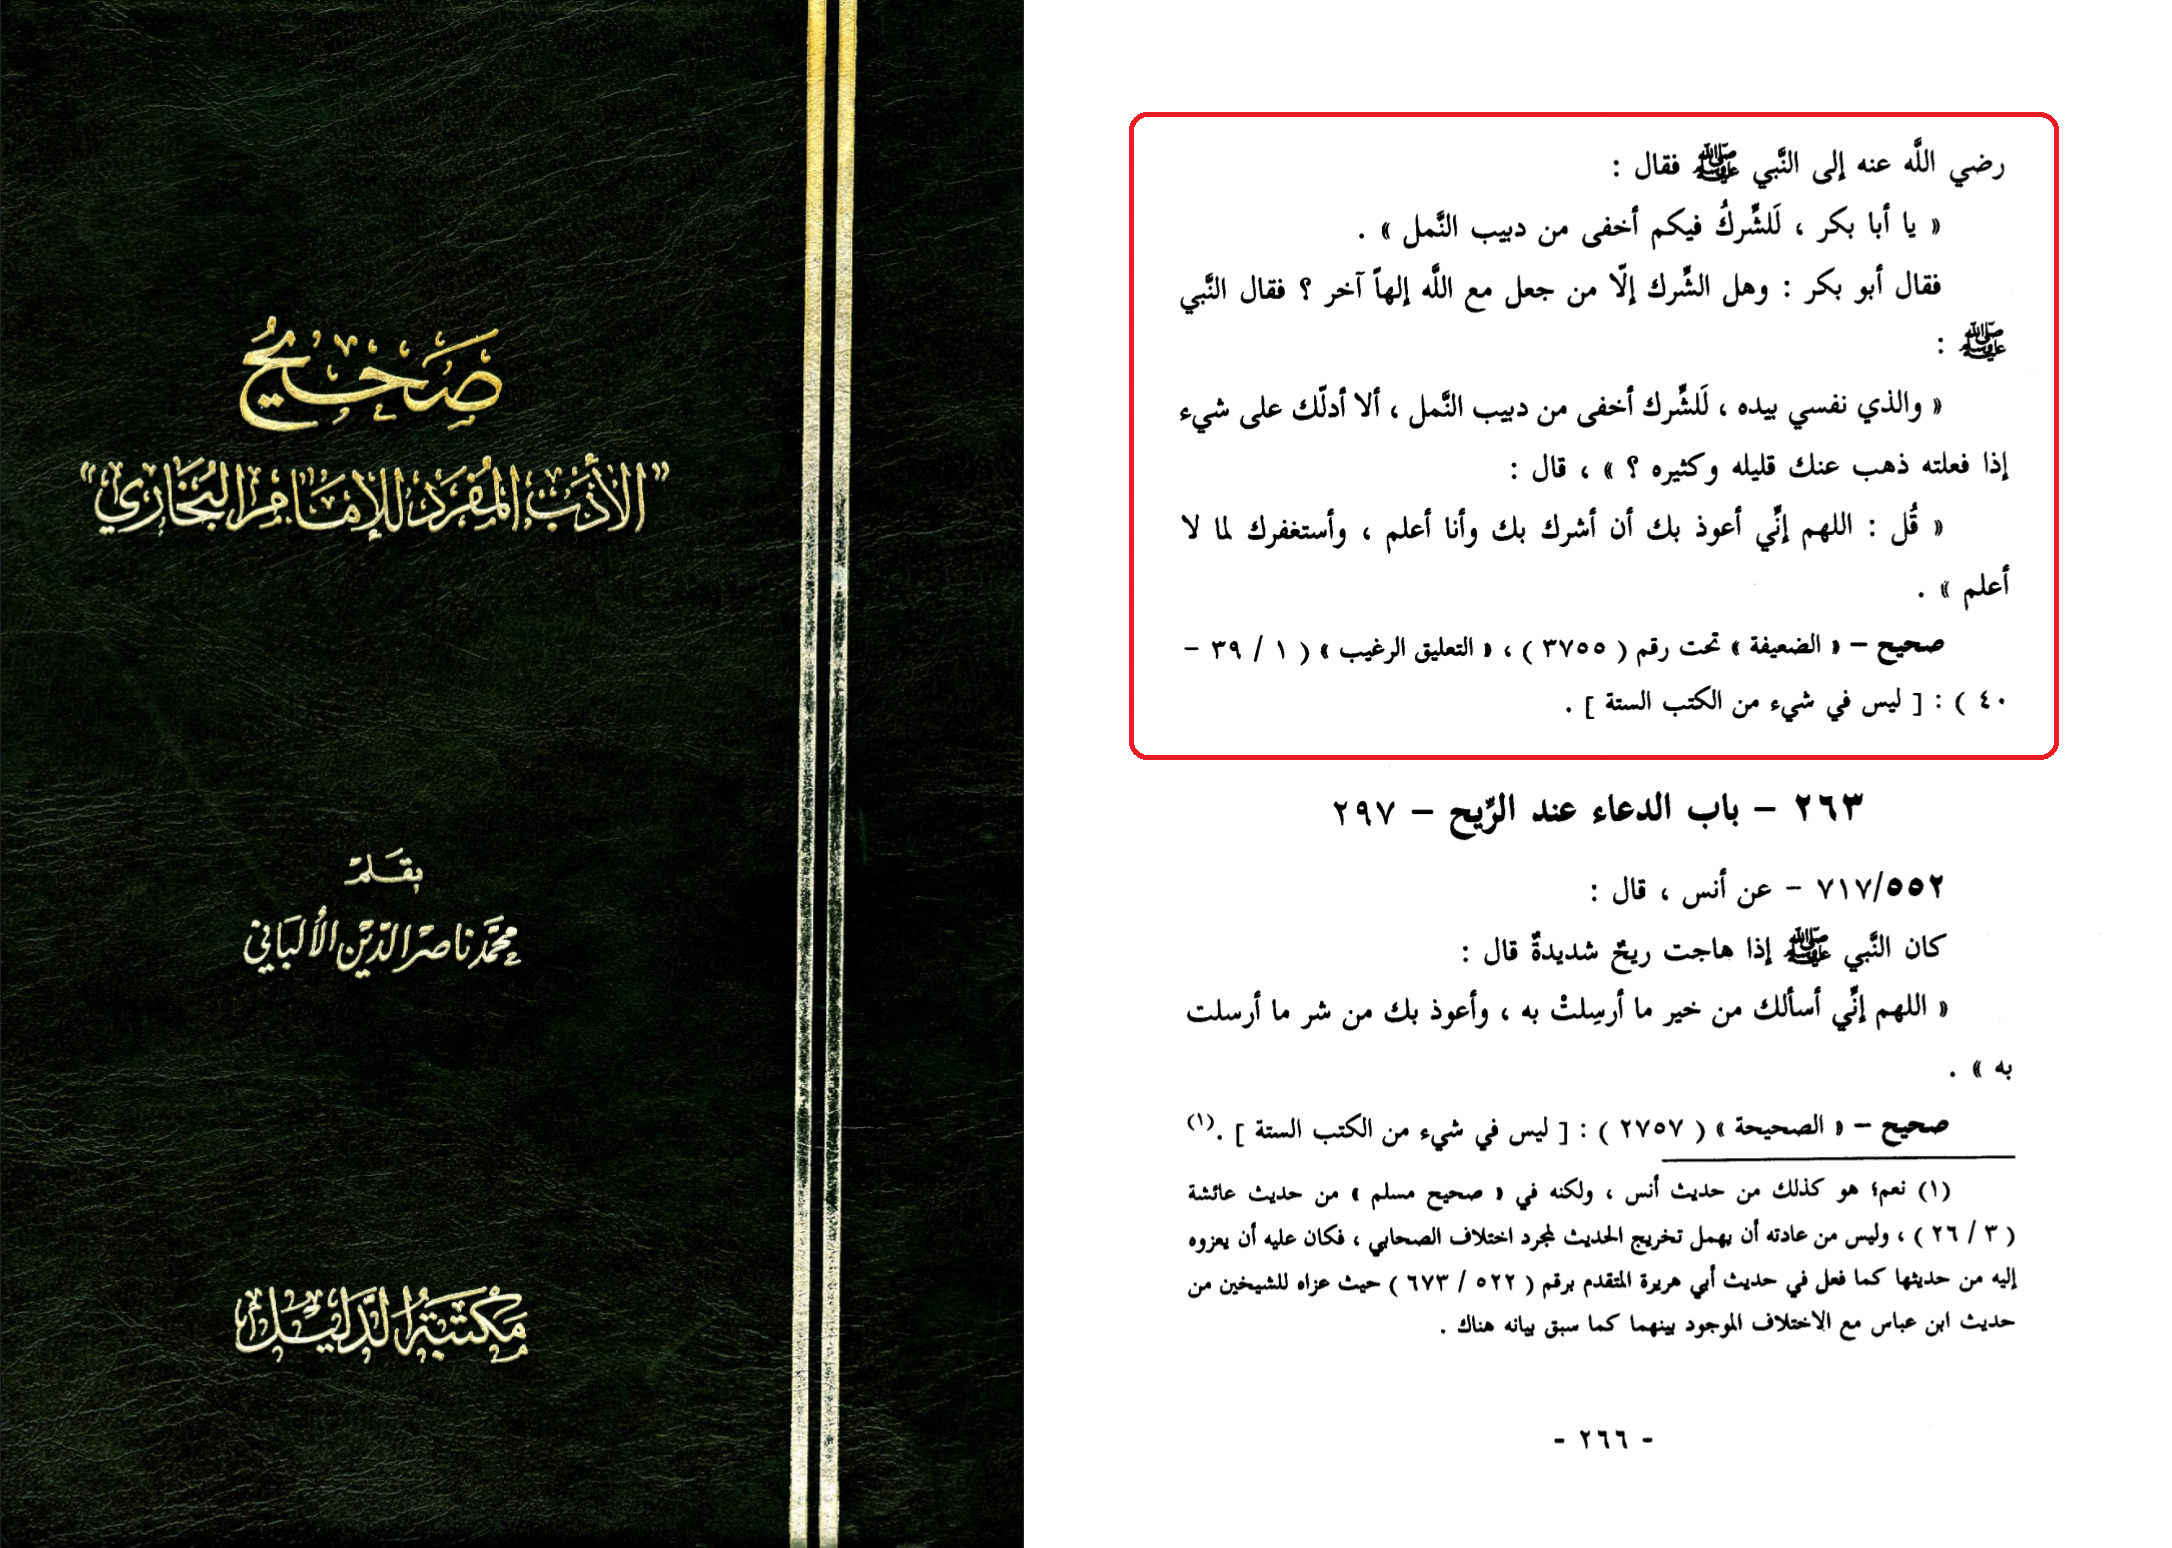 صَحِيحُ
"الأدَبُ المُفرَد للإمَام البُخَاري"
بقَلم
محمَّد ناصر الدّين الألبَاني
مكتبَة الدَّليل
رضي اللَّه عنه إلى النَّبي ﷺ فقال :
« يا أبا بكر ، لَلشِّركُ فيكم أخفى من دبيب النَّمل » .
فقال أبو بكر : وهل الشِّرك إلّا من جعل مع اللَّه إلهاً آخر ؟ فقال النَّبي
ﷺ :
« والذي نفسي بيده ، لَلشِّرك أخفى من دبيب النَّمل ، ألا أدلّك على شيء
إذا فعلته ذهب عنك قليله وكثيره ؟ » ، قال :
« قُل : اللهم إنِّي أعوذ بك أن أشرك بك وأنا أعلم ، وأستغفرك لما لا
أعلم » .
صحيح – « الضعيفة » تحت رقم ( ٣٧٥٥ ) ، « التعليق الرغيب » ( ١ / ٣٩ –
٤٠ ) : [ ليس في شيء من الكتب الستة ] .
٢٦٣ – باب الدعاء عند الرِّيح – ٢٩٧
٧١٧/٥٥٢ – عن أنس ، قال :
كان النَّبي ﷺ إذا هاجت ريحٌ شديدةٌ قال :
« اللهم إنِّي أسألك من خير ما أرسِلتْ به ، وأعوذ بك من شر ما أرسلت
به » .
صحيح – « الصحيحة » ( ٢٧٥٧ ) : [ ليس في شيء من الكتب الستة ] .(١)
(١) نعم؛ هو كذلك من حديث أنس ، ولكنه في « صحيح مسلم » من حديث عائشة
( ٣ / ٢٦ ) ، وليس من عادته أن يهمل تخريج الحديث لمجرد اختلاف الصحابي ، فكان عليه أن يعزوه
إليه من حديثها كما فعل في حديث أبي هريرة المتقدم برقم ( ٥٢٢ / ٦٧٣ ) حيث عزاه للشيخين من
حديث ابن عباس مع الاختلاف الموجود بينهما كما سبق بيانه هناك .
- ٢٦٦ -